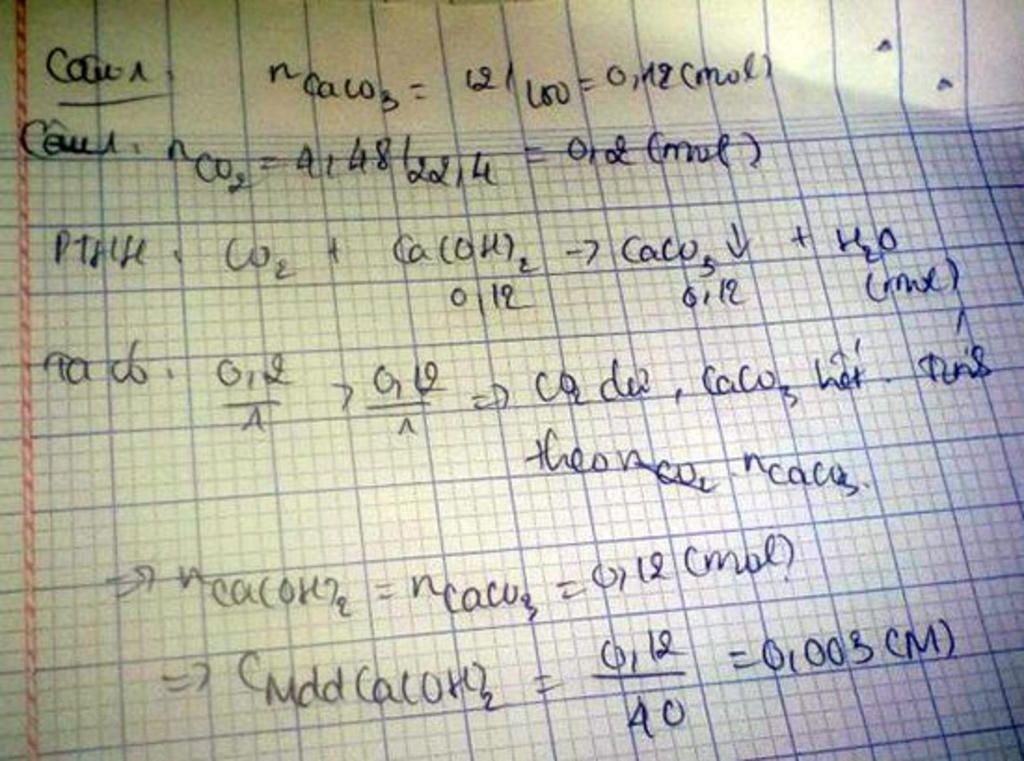 Câu 1. nCaCO₃ = 12/100 = 0,12 (mol)
Câu 1. nCO₂ = 4,48/22,4 = 0,2 (mol)
PTHH: CO₂ + Ca(OH)₂ → CaCO₃↓ + H₂O
0,12 0,12 (mol)
Ta có: 0,2/1 > 0,12/1 => CO₂ dư, CaCO₃ hết. Tính
theo nCO₂ nCaCO₃.
=> nCa(OH)₂ = nCaCO₃ = 0,12 (mol)
=> CMddCa(OH)₂ = 0,12/40 = 0,003 (M)